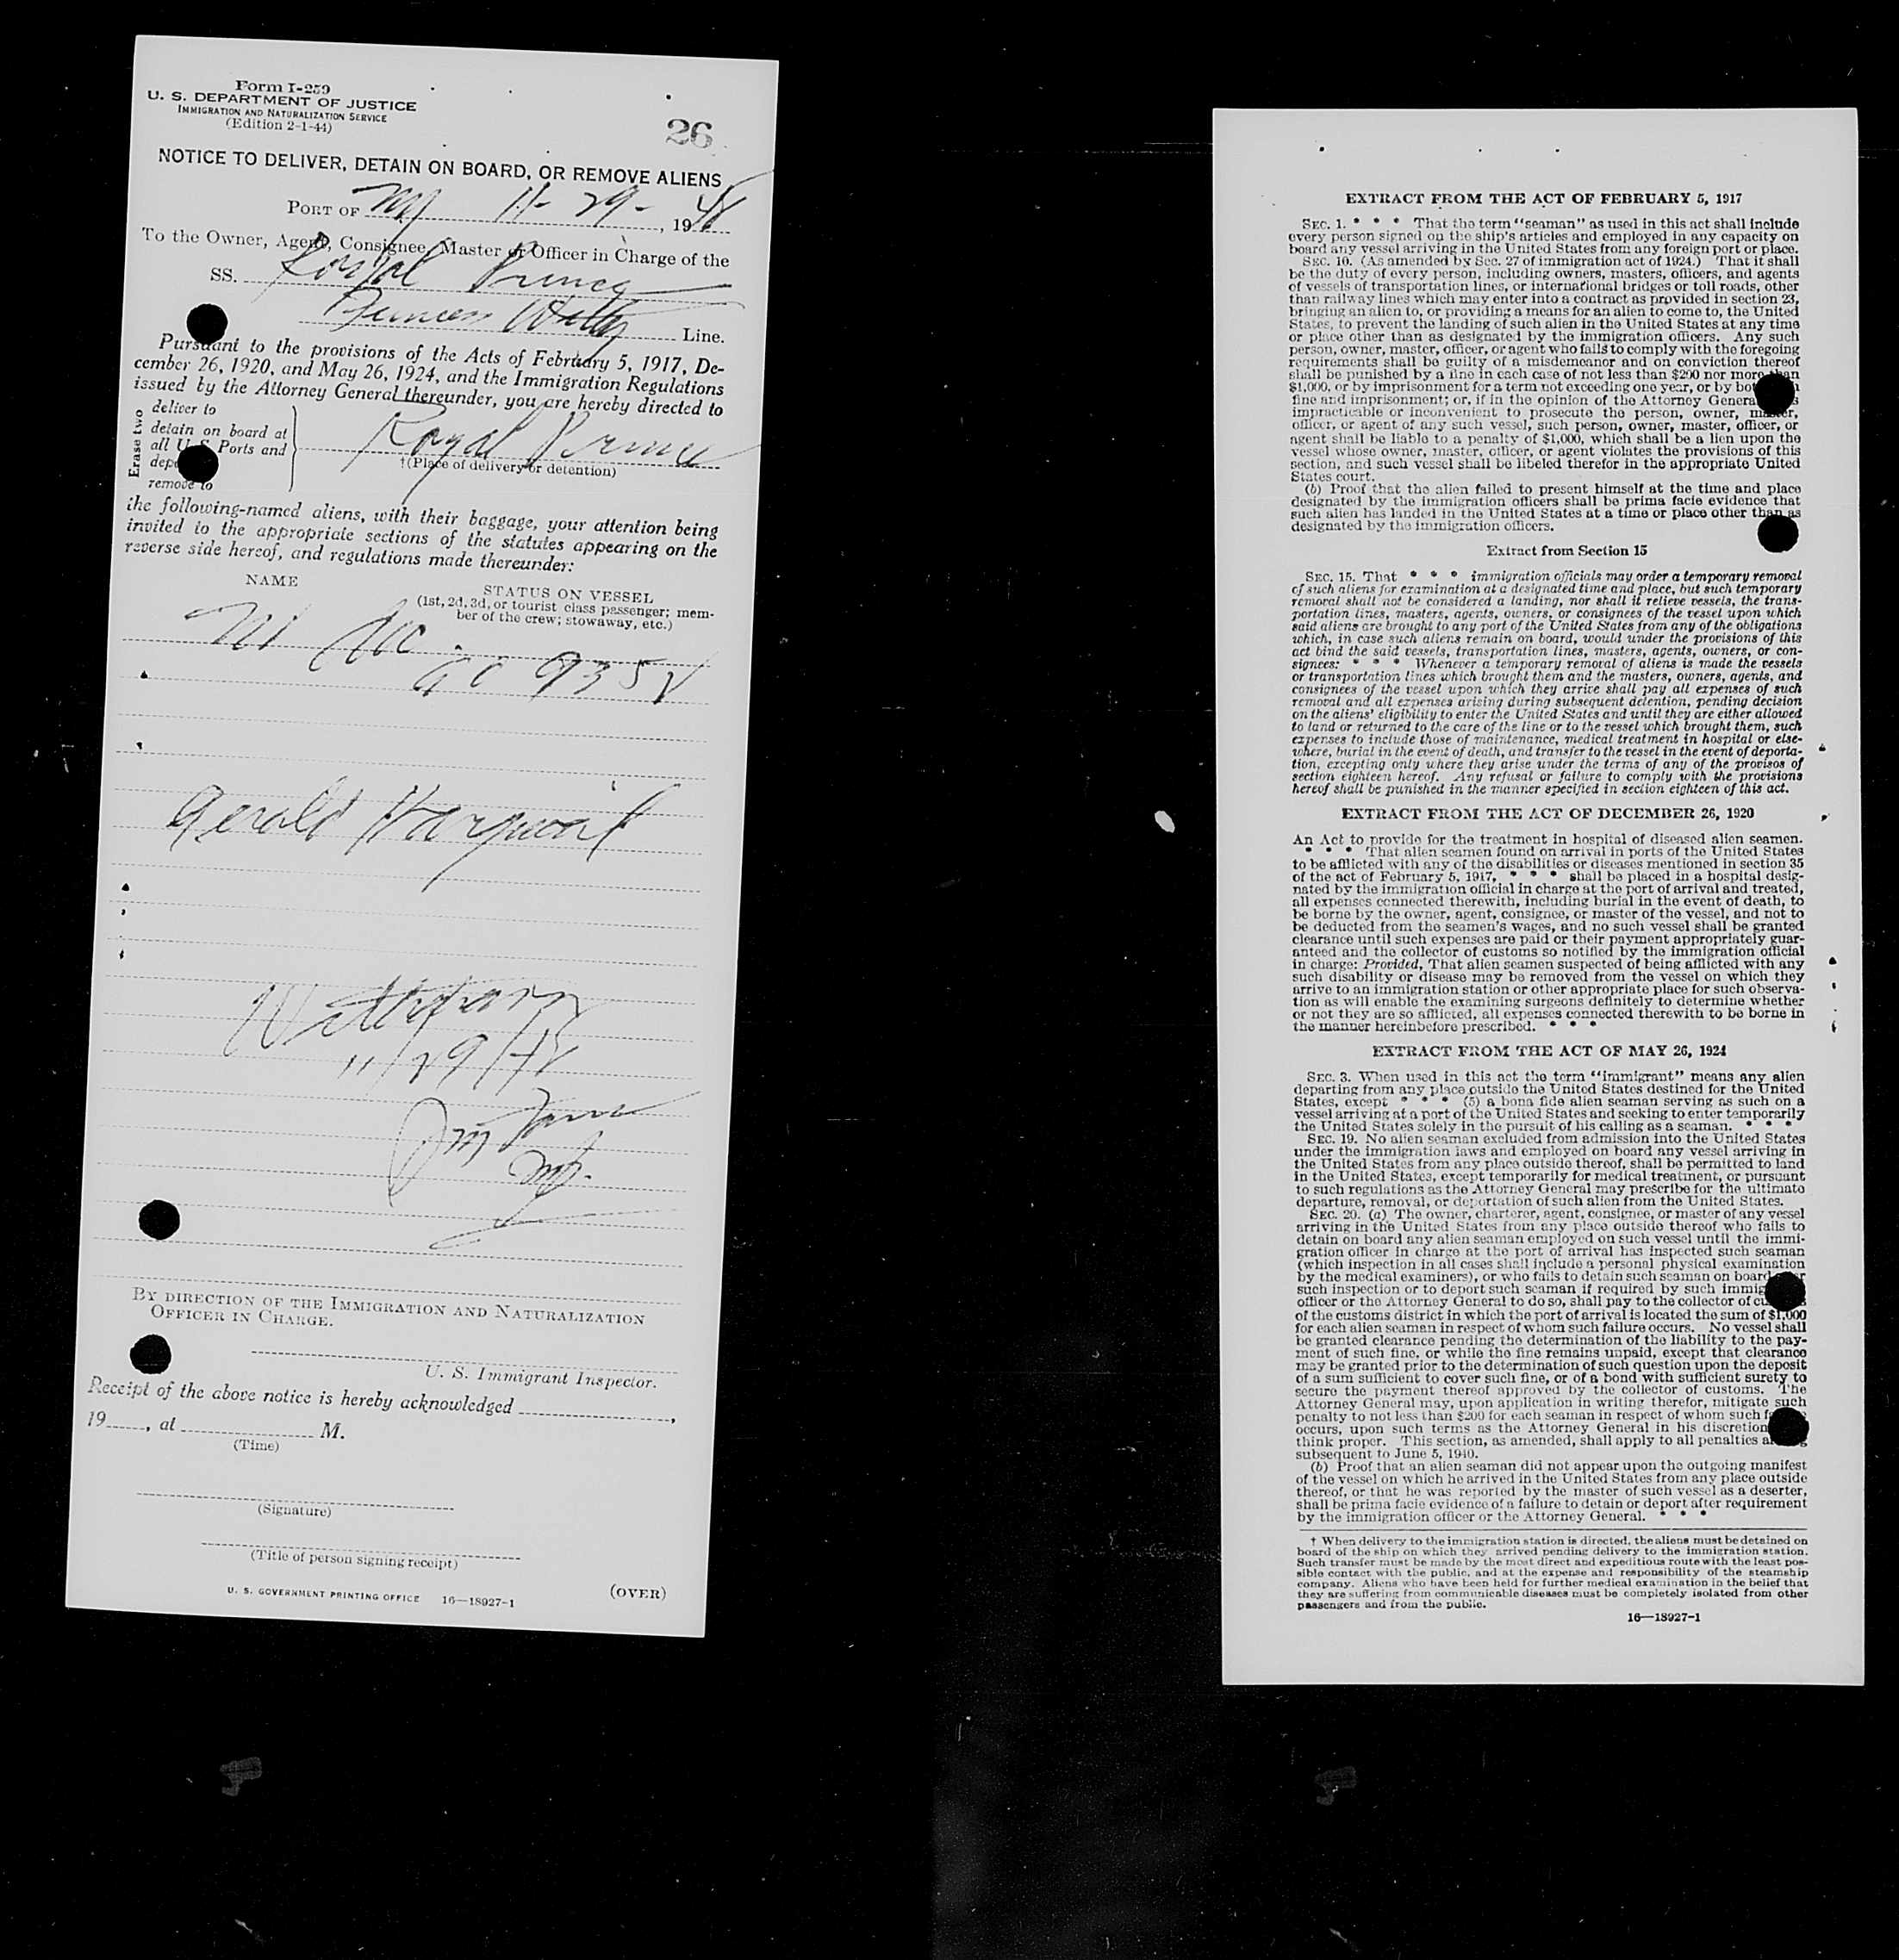 Form I-259
U. S. DEPARTMENT OF JUSTICE
IMMIGRATION AND NATURALIZATION SERVICE
(Edition 2-1-44)
26
NOTICE TO DELIVER, DETAIN ON BOARD, OR REMOVE ALIENS
PORT OF NY 11-29-, 1948
To the Owner, Agent, Consignee, Master or Officer in Charge of the
SS. Royal Prince
Line.
Pursuant to the provisions of the Acts of February 5, 1917, De-
cember 26, 1920, and May 26, 1924, and the Immigration Regulations
issued by the Attorney General thereunder, you are hereby directed to
Erase two
deliver to
detain on board at
all U. S. Ports and
remove to
Royal Prince
†(Place of delivery or detention)
the following-named aliens, with their baggage, your attention being
invited to the appropriate sections of the statutes appearing on the
reverse side hereof, and regulations made thereunder:
NAME
STATUS ON VESSEL
(1st, 2d, 3d, or tourist class passenger; mem-
ber of the crew; stowaway, etc.)
9352
Gerald
11/29/48
BY DIRECTION OF THE IMMIGRATION AND NATURALIZATION
OFFICER IN CHARGE.
U. S. Immigrant Inspector.
Receipt of the above notice is hereby acknowledged ,
19 , at M.
(Time)
(Signature)
(Title of person signing receipt)
U. S. GOVERNMENT PRINTING OFFICE 16—18927-1
(OVER)
EXTRACT FROM THE ACT OF FEBRUARY 5, 1917
SEC. 1. * * * That the term "seaman" as used in this act shall include
every person signed on the ship's articles and employed in any capacity on
board any vessel arriving in the United States from any foreign port or place.
SEC. 10. (As amended by Sec. 27 of immigration act of 1924.) That it shall
be the duty of every person, including owners, masters, officers, and agents
of vessels of transportation lines, or international bridges or toll roads, other
than railway lines which may enter into a contract as provided in section 23,
bringing an alien to, or providing a means for an alien to come to, the United
States, to prevent the landing of such alien in the United States at any time
or place other than as designated by the immigration officers. Any such
person, owner, master, officer, or agent who fails to comply with the foregoing
requirements shall be guilty of a misdemeanor and on conviction thereof
shall be punished by a fine in each case of not less than $200 nor more than
$1,000, or by imprisonment for a term not exceeding one year, or by bo
fine and imprisonment; or, if in the opinion of the Attorney Genera
impracticable or inconvenient to prosecute the person, owner, master,
officer, or agent of any such vessel, such person, owner, master, officer, or
agent shall be liable to a penalty of $1,000, which shall be a lien upon the
vessel whose owner, master, officer, or agent violates the provisions of this
section, and such vessel shall be libeled therefor in the appropriate United
States court.
(b) Proof that the alien failed to present himself at the time and place
designated by the immigration officers shall be prima facie evidence that
such alien has landed in the United States at a time or place other than as
designated by the immigration officers.
Extract from Section 15
SEC. 15. That * * * immigration officials may order a temporary removal
of such aliens for examination at a designated time and place, but such temporary
removal shall not be considered a landing, nor shall it relieve vessels, the trans-
portation lines, masters, agents, owners, or consignees of the vessel upon which
said aliens are brought to any port of the United States from any of the obligations
which, in case such aliens remain on board, would under the provisions of this
act bind the said vessels, transportation lines, masters, agents, owners, or con-
signees: * * * Whenever a temporary removal of aliens is made the vessels
or transportation lines which brought them and the masters, owners, agents, and
consignees of the vessel upon which they arrive shall pay all expenses of such
removal and all expenses arising during subsequent detention, pending decision
on the aliens' eligibility to enter the United States and until they are either allowed
to land or returned to the care of the line or to the vessel which brought them, such
expenses to include those of maintenance, medical treatment in hospital or else-
where, burial in the event of death, and transfer to the vessel in the event of deporta-
tion, excepting only where they arise under the terms of any of the provisos of
section eighteen hereof. Any refusal or failure to comply with the provisions
hereof shall be punished in the manner specified in section eighteen of this act.
EXTRACT FROM THE ACT OF DECEMBER 26, 1920
An Act to provide for the treatment in hospital of diseased alien seamen.
* * * That alien seamen found on arrival in ports of the United States
to be afflicted with any of the disabilities or diseases mentioned in section 35
of the act of February 5, 1917, * * * shall be placed in a hospital desig-
nated by the immigration official in charge at the port of arrival and treated,
all expenses connected therewith, including burial in the event of death, to
be borne by the owner, agent, consignee, or master of the vessel, and not to
be deducted from the seamen's wages, and no such vessel shall be granted
clearance until such expenses are paid or their payment appropriately guar-
anteed and the collector of customs so notified by the immigration official
in charge: Provided, That alien seamen suspected of being afflicted with any
such disability or disease may be removed from the vessel on which they
arrive to an immigration station or other appropriate place for such observa-
tion as will enable the examining surgeons definitely to determine whether
or not they are so afflicted, all expenses connected therewith to be borne in
the manner hereinbefore prescribed. * * *
EXTRACT FROM THE ACT OF MAY 26, 1924
SEC. 3. When used in this act the term "immigrant" means any alien
departing from any place outside the United States destined for the United
States, except * * * (5) a bona fide alien seaman serving as such on a
vessel arriving at a port of the United States and seeking to enter temporarily
the United States solely in the pursuit of his calling as a seaman. * * *
SEC. 19. No alien seaman excluded from admission into the United States
under the immigration laws and employed on board any vessel arriving in
the United States from any place outside thereof, shall be permitted to land
in the United States, except temporarily for medical treatment, or pursuant
to such regulations as the Attorney General may prescribe for the ultimate
departure, removal, or deportation of such alien from the United States.
SEC. 20. (a) The owner, charterer, agent, consignee, or master of any vessel
arriving in the United States from any place outside thereof who fails to
detain on board any alien seaman employed on such vessel until the immi-
gration officer in charge at the port of arrival has inspected such seaman
(which inspection in all cases shall include a personal physical examination
by the medical examiners), or who fails to detain such seaman on board
such inspection or to deport such seaman if required by such immig
officer or the Attorney General to do so, shall pay to the collector of cu
of the customs district in which the port of arrival is located the sum of $1,000
for each alien seaman in respect of whom such failure occurs. No vessel shall
be granted clearance pending the determination of the liability to the pay-
ment of such fine, or while the fine remains unpaid, except that clearance
may be granted prior to the determination of such question upon the deposit
of a sum sufficient to cover such fine, or of a bond with sufficient surety to
secure the payment thereof approved by the collector of customs. The
Attorney General may, upon application in writing therefor, mitigate such
penalty to not less than $200 for each seaman in respect of whom such f
occurs, upon such terms as the Attorney General in his discretion
think proper. This section, as amended, shall apply to all penalties a
subsequent to June 5, 1940.
(b) Proof that an alien seaman did not appear upon the outgoing manifest
of the vessel on which he arrived in the United States from any place outside
thereof, or that he was reported by the master of such vessel as a deserter,
shall be prima facie evidence of a failure to detain or deport after requirement
by the immigration officer or the Attorney General. * * *
† When delivery to the immigration station is directed, the aliens must be detained on
board of the ship on which they arrived pending delivery to the immigration station.
Such transfer must be made by the most direct and expeditious route with the least pos-
sible contact with the public, and at the expense and responsibility of the steamship
company. Aliens who have been held for further medical examination in the belief that
they are suffering from communicable diseases must be completely isolated from other
passengers and from the public.
16—18927-1